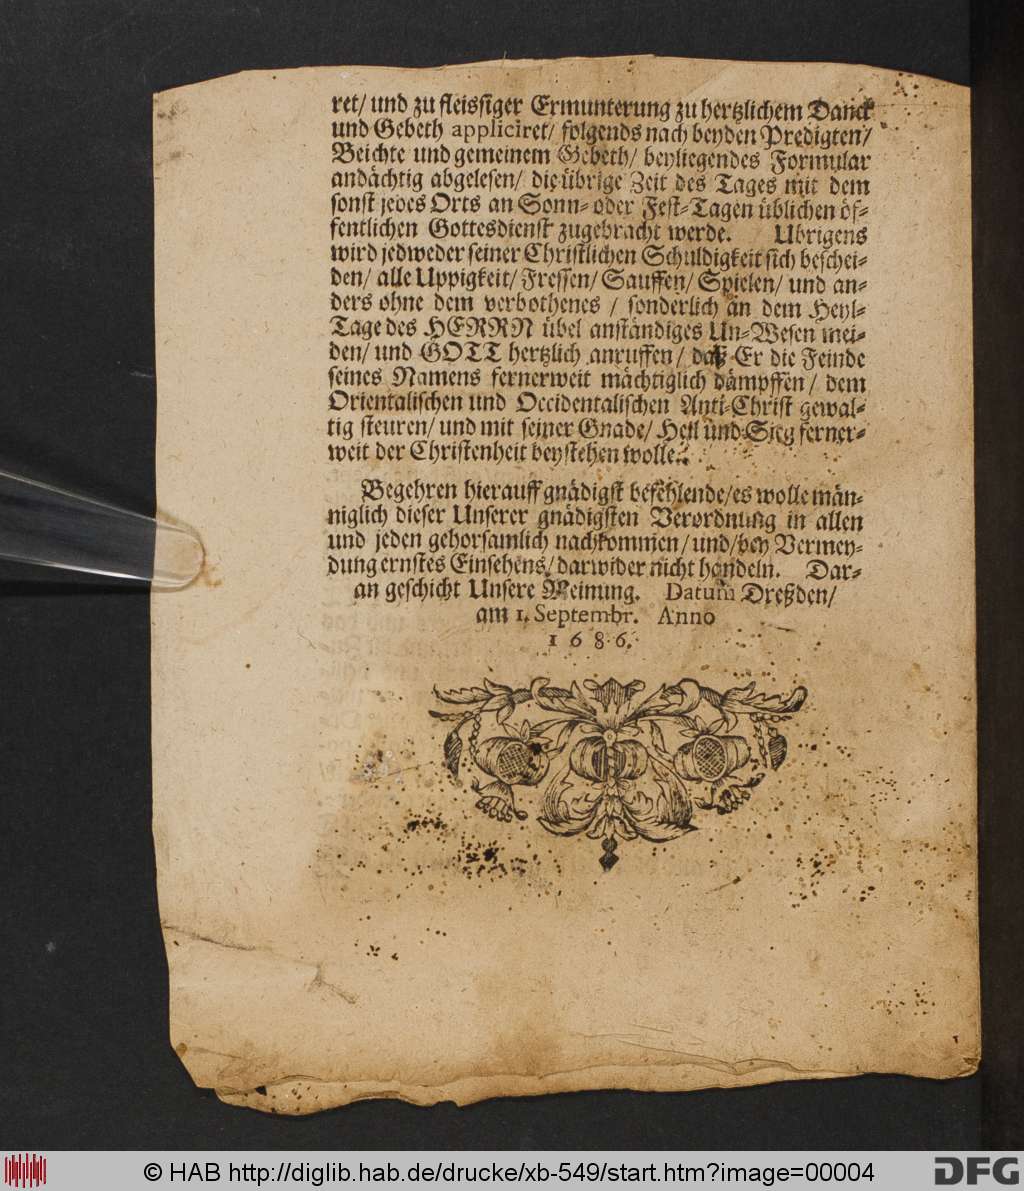 ret/ und zu fleissiger Ermunterung zu hertzlichem Danck
und Gebeth appliciret/ folgends nach beyden Predigten/
Beichte und gemeinem Gebeth/ beyliegendes Formular
andächtig abgelesen/ die übrige Zeit des Tages mit dem
sonst jedes Orts an Sonn- oder Fest-Tagen üblichen öf-
fentlichen Gottesdienst zugebracht werde. Ubrigens
wird jedweder seiner Christlichen Schuldigkeit sich beschei-
den/ alle Uppigkeit/ Fressen/ Sauffen/ Spielen/ und an-
ders ohne dem verbothenes / sonderlich an dem Heyl-
Tage des HERRN übel anständiges Un-Wesen mei-
den/ und GOTT hertzlich anruffen/ daß Er die Feinde
seines Namens fernerweit mächtiglich dämpffen/ dem
Orientalischen und Occidentalischen Anti-Christ gewal-
tig steuren/ und mit seiner Gnade/ Heil und Sieg ferner-
weit der Christenheit beystehen wolle.
Begehren hierauff gnädigst befehlende/ es wolle män-
niglich dieser Unserer gnädigsten Verordnung in allen
und jeden gehorsamlich nachkommen/ und/ bey Vermey-
dung ernstes Einsehens/ darwider nicht handeln. Dar-
an geschicht Unsere Meinung. Datum Dreßden/
am 1. Septembr. Anno
1686.
© HAB http://diglib.hab.de/drucke/xb-549/start.htm?image=00004
DFG